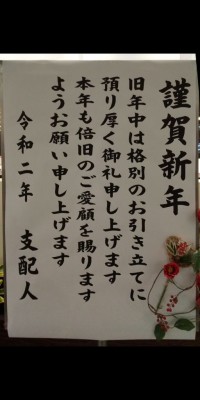 謹賀新年
旧年中は格別のお引き立てに
預り厚く御礼申し上げます
本年も倍旧のご愛顧を賜ります
ようお願い申し上げます
令和二年 支配人